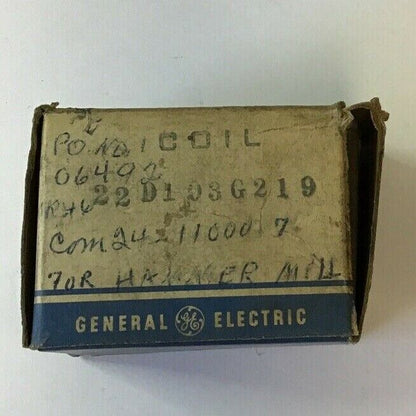 PO. No. 1 COIL
06492
22D103G219
Com 24211000 7
FOR HAMMER MILL
GENERAL GE ELECTRIC